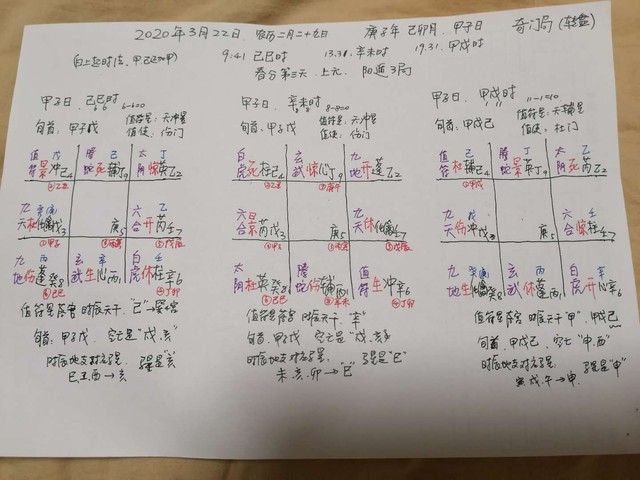 2020年3月22日 农历二月二十九日 庚子年 己卯月 甲子日 奇门局(转盘)
(日上起时法, 甲己还加甲) 9:41 己巳时 13.31 辛未时 19.31 甲戌时
春分第三天 上元 阳遁3局
甲子日 己巳时
旬首: 甲子戊 值符星: 天冲星
值使: 伤门
甲子日 辛未时
旬首: 甲子戊 值符星: 天冲星
值使: 伤门
甲子日, 甲戌时
旬首: 甲戌己 值符星: 天辅星
值使: 杜门
值符 戊 景冲己4
螣蛇 己 死辅丁9
太阴 丁 惊英乙2
九天 癸庚 杜任禽戊3
庚5
六合 乙 开芮壬7
九地 丙 伤蓬癸8
玄武 辛 生心丙1
白虎 壬 休柱辛6
白虎 死柱己4
玄武 惊心丁9
九地 开蓬乙2
六合 景芮戊3
庚5
九天 休任禽壬7
太阴 杜英癸8
螣蛇 伤辅丙1
值符 生冲辛6
值符 己 杜辅己4
螣蛇 丁 景英丁9
太阴 乙 死芮乙2
九天 戊 伤冲戊3
庚5
六合 壬 惊柱壬7
九地 癸庚 生任禽癸8
玄武 丙 休蓬丙1
白虎 辛 开心辛6
值符星落宫 时辰天干 "己"
旬首: 甲子戊 空亡是"戌.亥"
时辰地支对应马星: 马星是"亥"
巳.丑.酉→亥
值符星落宫 时辰天干"辛"
旬首: 甲子戊 空亡是"戌.亥"
时辰地支对应马星: 马星是"巳"
未.亥.卯→"巳"
值符星落宫 时辰天干"甲", 甲戌己
旬首 甲戌己, 空亡"申.酉"
时辰地支对应马星: 马星是"申"
寅.戌.午→申